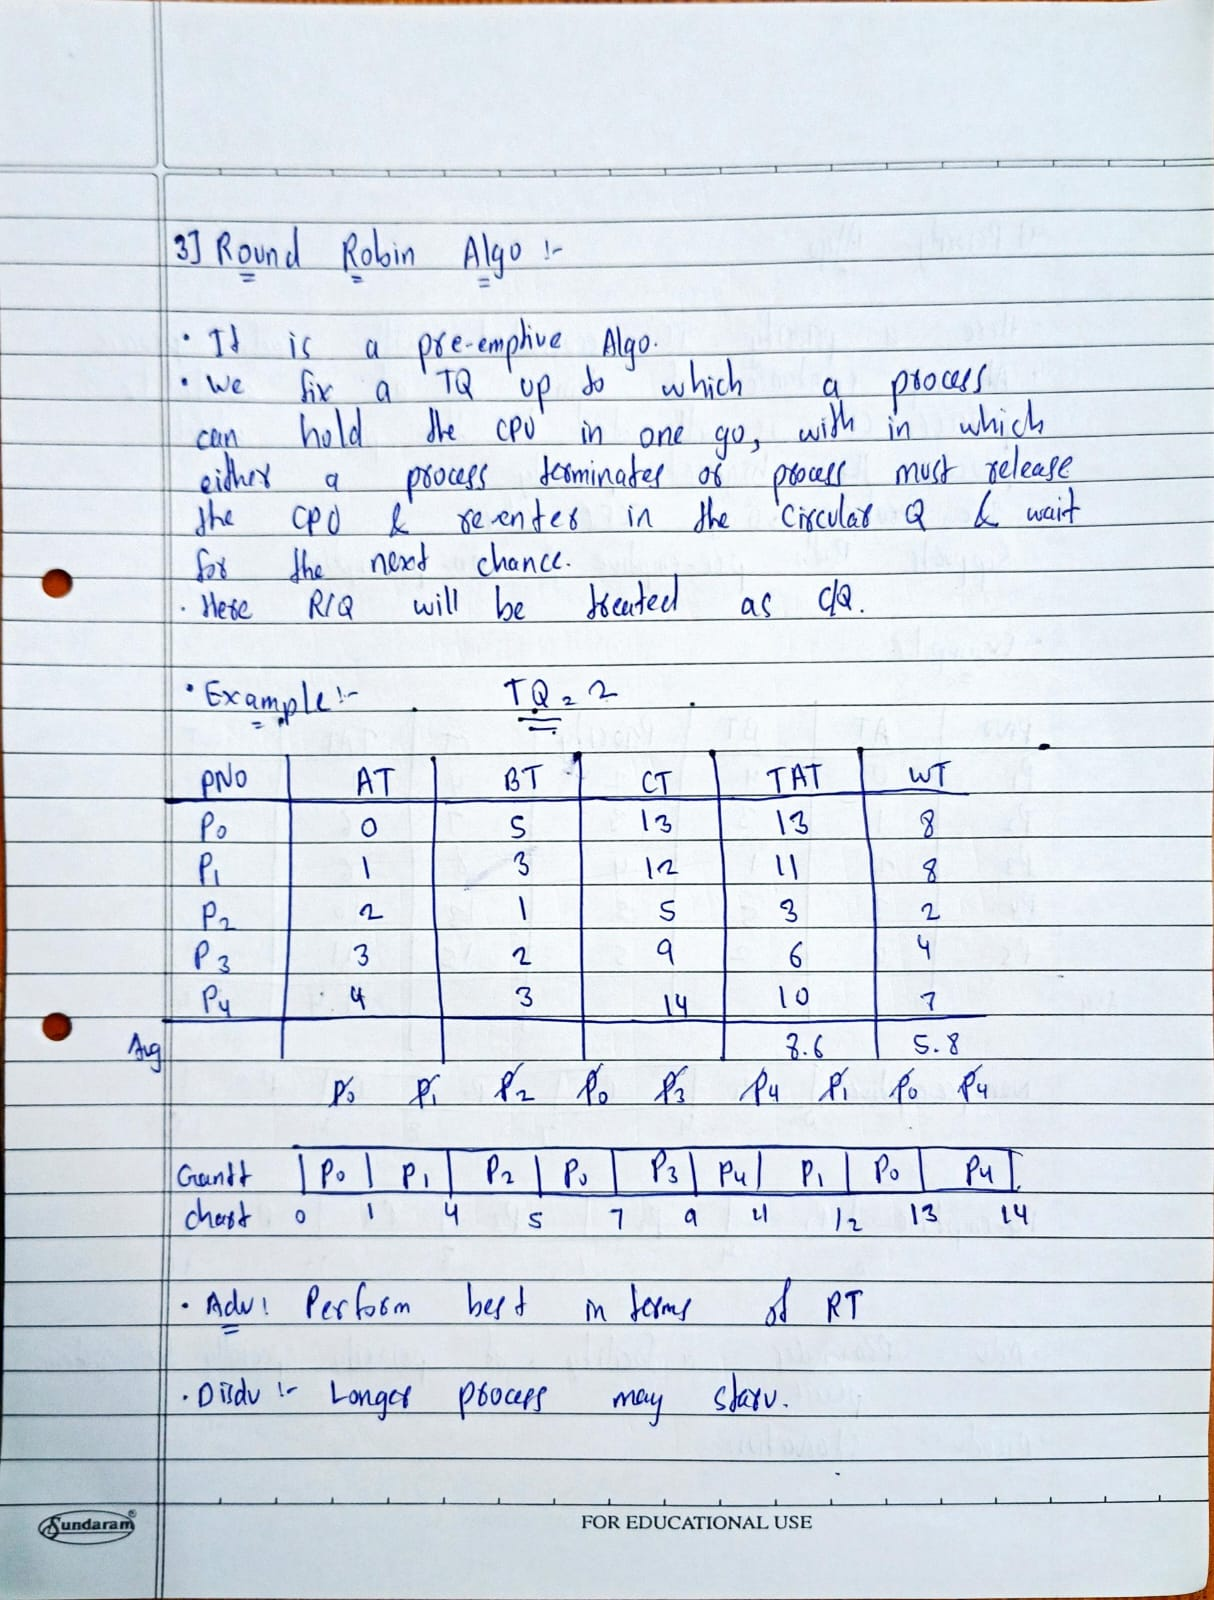 3] Round Robin Algo :-
• It is a pre-emptive Algo.
• We fix a TQ up to which a process
can hold the CPU in one go, with in which
either a process terminates or process must release
the CPU & re-enter in the Circular Q & wait
for the next chance.
• Here R/Q will be treated as C/Q.
• Example :- TQ = 2
PNo AT BT CT TAT WT
P0 0 5 13 13 8
P1 1 3 12 11 8
P2 2 1 5 3 2
P3 3 2 9 6 4
P4 4 3 14 10 7
Avg 8.6 5.8
P0 P1 P2 P0 P3 P4 P1 P0 P4
Gantt P0 P1 P2 P0 P3 P4 P1 P0 P4
chart 0 1 4 5 7 9 11 12 13 14
• Adv : Perform best in terms of RT
• Disdv :- Longer process may starv.
Sundaram®
FOR EDUCATIONAL USE